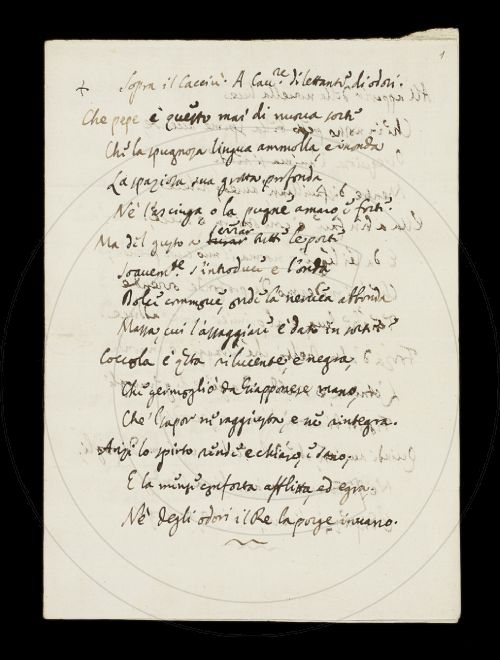 1
+ Sopra il Cacciù. A Cav.re dilettante di odori.
Che pepe è questo mai di nuova sorte
Che la spugnosa lingua ammolla, e inonda
La spaziosa sua grotta profonda
Nè l'asciuga o la pugne amaro, e forte?
Ma del gusto a ferrar tutte le porte
Soavem.te s'introduce e l'onda
Dolce commove, onde la nerica
Massa, cui l'assaggiare è dato in sorte?
Coccola è q.ta rilucente, e negra,
Che germogliò da Giapponese mano,
Che vapor ne raggiusta, e ne rintegra.
Anzi lo spirto rende e chiaro, e sano,
E la mente conforta afflitta, ed egra.
Nè degli odori il Re la porge invano.